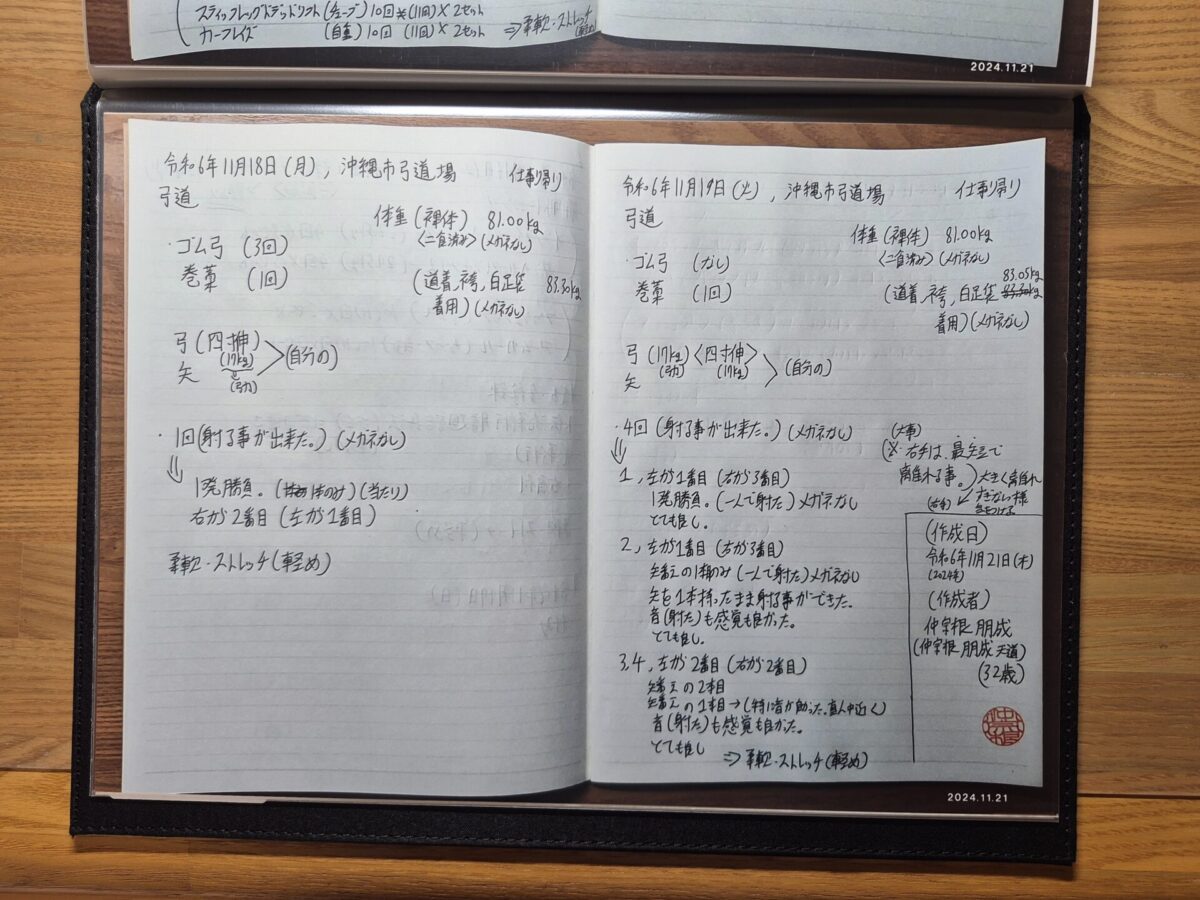 スティッフレッグドデッドリフト(チューブ)10回*(11回)×2セット
カーフレイズ (自重)10回 (11回)×2セット ⇒柔軟・ストレッチ(軽め)
2024.11.21
令和6年11月18日(月), 沖縄市弓道場 仕事帰り
弓道
体重(裸体) 81.00kg
<二食済み>(メガネなし)
・ゴム弓 (3回)
巻藁 (1回) (道着,袴,白足袋 83.30kg
着用)(メガネなし)
弓(四寸伸)
(17kg)
(弓力)
矢 >(自分の)
・1回(射る事が出来た。)(メガネなし)
⇓
1発勝負。(1本のみ)(当たり)
右から2番目(左から1番目)
柔軟・ストレッチ(軽め)
令和6年11月19日(火), 沖縄市弓道場 仕事帰り
弓道
体重(裸体) 81.00kg
<二食済み>(メガネなし)
・ゴム弓 (なし)
83.05kg
巻藁 (1回) (道着,袴,白足袋 83.30kg
着用)(メガネなし)
弓(17kg)<四寸伸>
(弓力) (17kg)
矢 >(自分の)
・4回(射る事が出来た。)(メガネなし)
⇓
1,左から1番目(右から3番目)
1発勝負。(一人で射た)メガネなし
とても良し。
2,左から1番目(右から3番目)
矢番えの1本のみ(一人で射た)メガネなし
矢を1本持ったまま射る事ができた。
音(射た)も感覚も良かった。
とても良し。
3,4,左から2番目(右から2番目)
矢番えの2本目
矢番えの1本目→(特に音が良かった。真ん中近く)
音(射た)も感覚も良かった。
とても良し
⇒柔軟・ストレッチ(軽め)
(大事)
(※右手は、最短で
離れる事。)大きく離れ
すぎない様
気をつける
(右手)
(作成日)
令和6年11月21日(木)
(2024年)
(作成者)
仲宗根 朋成
(仲宗根 朋成 天道)
(32歳)
仲宗根
2024.11.21